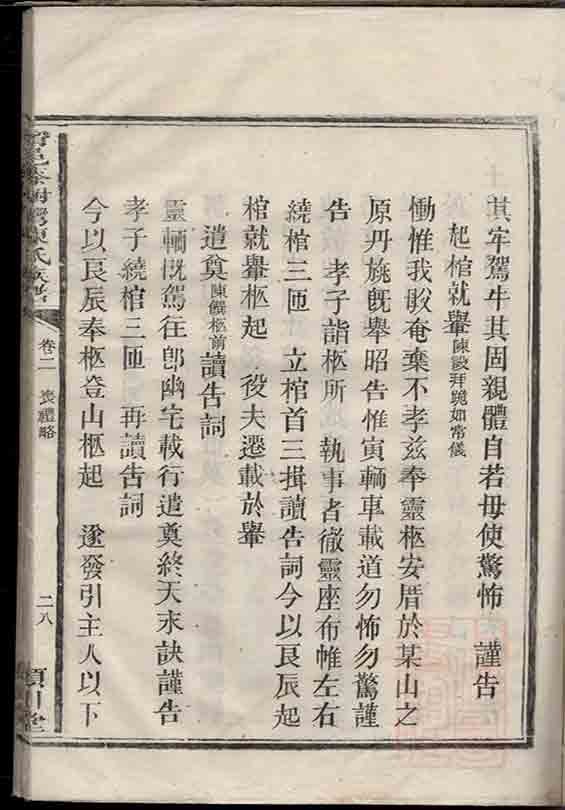 其牢駕牛其固親體自若毋使驚怖　謹告
起棺就轝陳設拜跪如常儀
慟惟我敭奄棄不孝兹奉靈柩安厝於某山之
原丹旐旣舉昭告惟寅輀車載道勿怖勿驚謹
告　孝子詣柩所　執事者徹靈座布帷左右
繞棺三匝　立棺首三揖讀告詞今以良辰起
棺就轝柩起　役夫遷載於轝
遣奠陳饌柩前讀告詞
靈輀旣駕往卽幽宅載行遣奠終天永訣謹告
孝子繞棺三匝　再讀告詞
今以良辰奉柩登山柩起　遂發引主人以下
陳氏族譜
卷二　喪禮略
二八
潁川堂